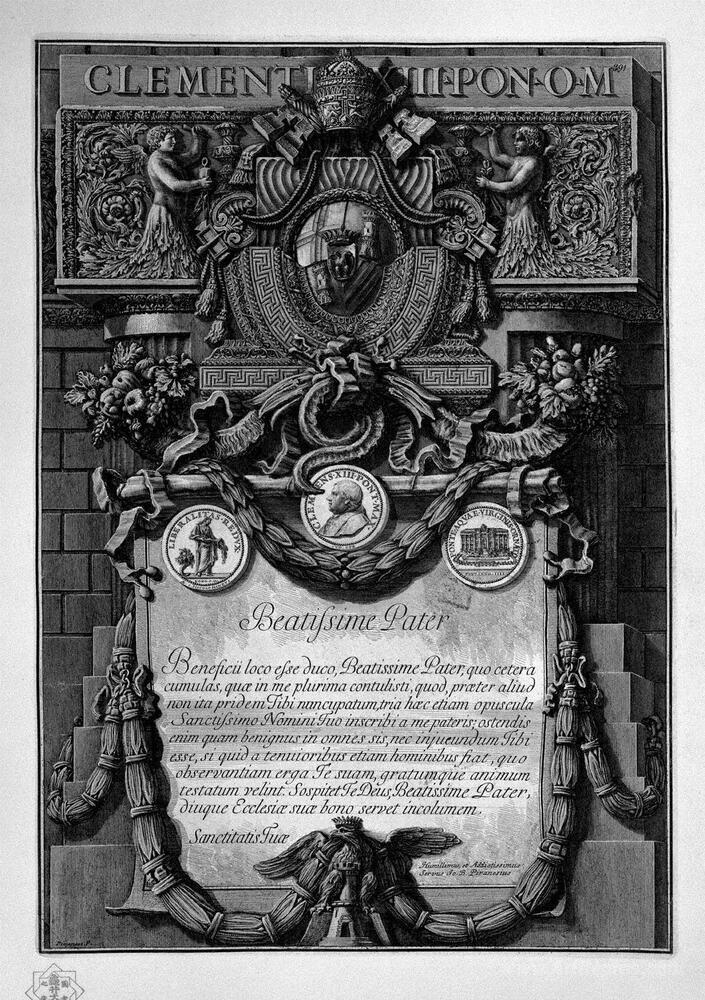 CLEMENTI XIII·PON·O·M
291
LIBERALITAS·REDUX
CLEMENS·XIII·PONT·M·A·
Beatiſsime Pater
Beneficii loco eſse duco, Beatissime Pater, quo cetera
cumulas, quæ in me plurima contulisti, quod, præter aliud
non ita pridem Tibi nuncupatum, tria hæc etiam opuscula
Sanctiſsimo Nomini Tuo inscribi a me pateris; ostendis
enim quam benignus in omnes sis, nec injucundum Tibi
esse, si quid a tenuioribus etiam hominibus fiat, quo
observantiam erga Te suam, gratumque animum
testatum velint. Sospitet Te Deus, Beatissime Pater,
diuque Ecclesiæ suæ bono servet incolumem.
Sanctitatis Tuæ
Humillimus, et Addictissimus
Servus Jo. B. Piranesius
Piranesi F.